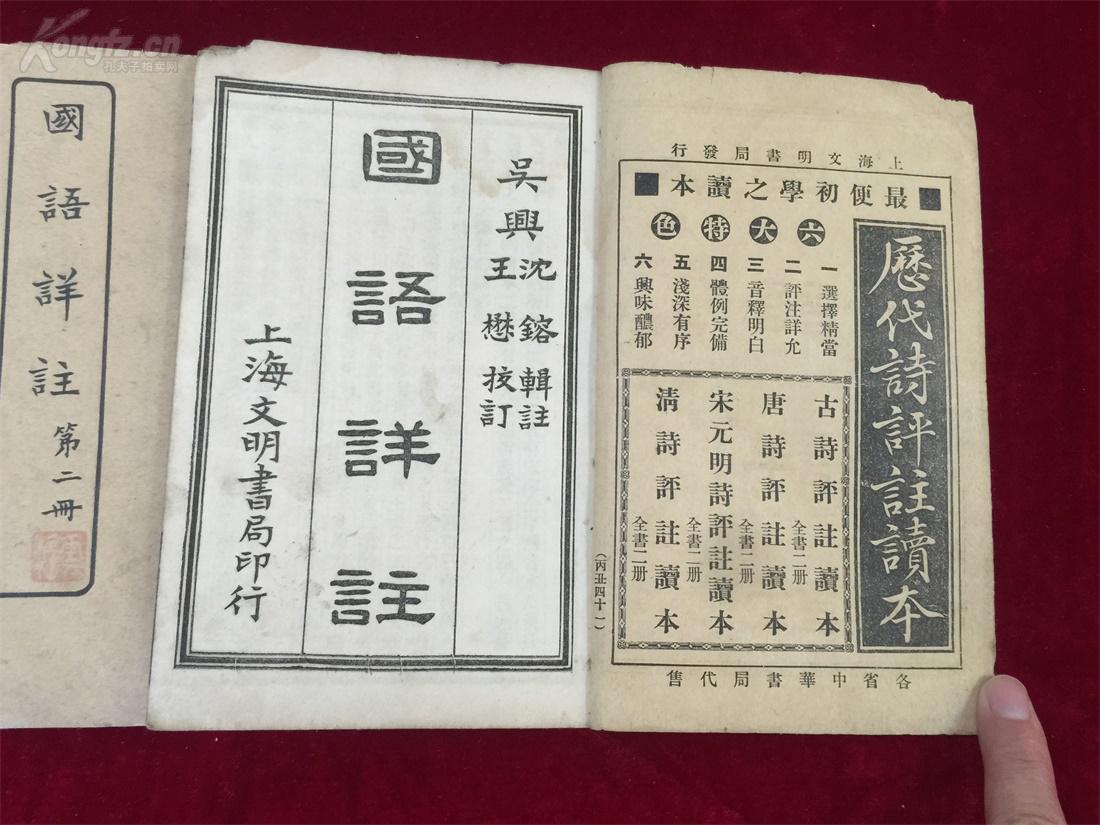 Kongfz.cn
孔夫子拍卖网
上海文明書局發行
最便初學之讀本
六大特色
一選擇精當
二評注詳允
三音釋明白
四體例完備
五淺深有序
六興味醲郁
歷代詩評註讀本
古詩評註讀本
全書二册
唐詩評註讀本
全書二册
宋元明詩評註讀本
全書二册
清詩評註讀本
全書二册
各省中華書局代售
(丙丑四十一)
吳興沈鎔輯註
王懋挍訂
國語詳註
上海文明書局印行
國語詳註第二冊